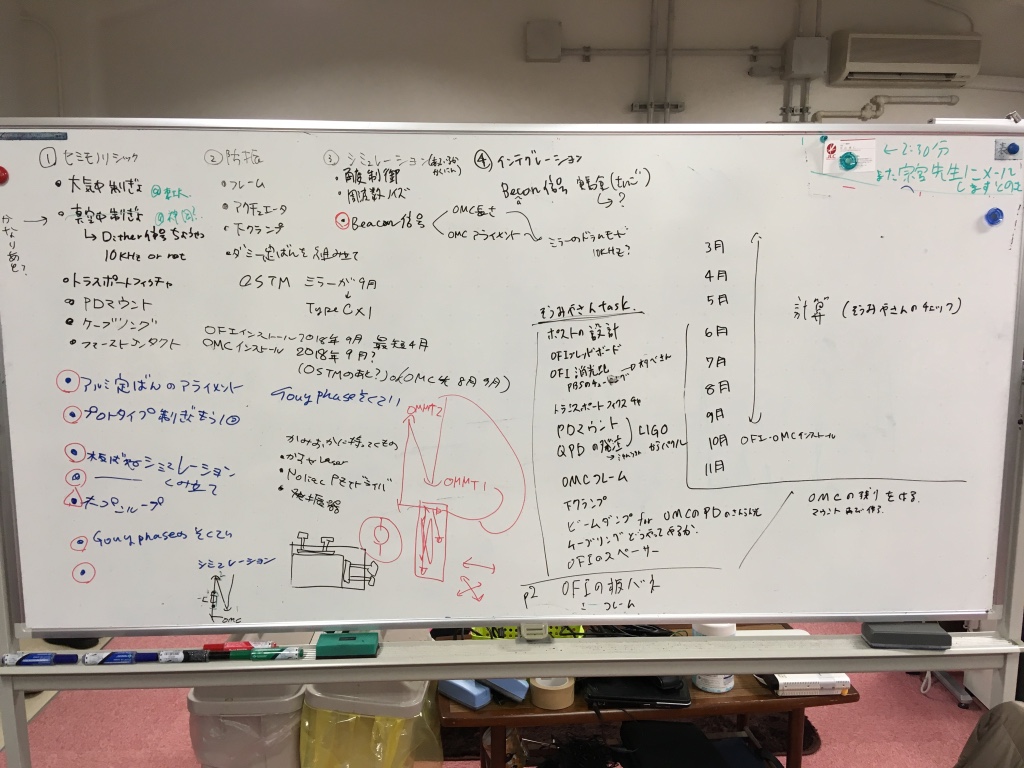 ① セミモノリシック
• 大気中制ぎょ
• 真空中制ぎょ
↳ Dither信号
10KHz or not
• トラスポートフィクチャ
• PDマウント
• ケーブリング
• ファーストコンタクト
② 防振
• フレーム
• アクチュエータ
• 下クランプ
• ダミー定ばんを組み立て
OSTM ミラーが9月
↓
Type C×1
OFIインストール 2018年9月 最短4月
OMCインストール 2018年9月?
(OSTMのあと?)
OMC 8月9月)
③ シミュレーション
• 制御
• 周波数ノイズ
• Beacon信号
OMC長さ
OMCアライメント
ミラーのドラムモード
10KHz?
④ インテグレーション
Becon信号
↳ ?
← 2:30分
また宗宮先生にメール
しますとのこと
• アルミ定ばんのアライメント
• プロトタイプ制ぎょ
• 板ばねシミュレーション
• 組み立て
• オープンループ
• Gouy phaseのそくてい
シミュレーション
OMC
Gouy phaseそくてい
かみおかに持ってくもの
• Laser
• Noliac PZTドライバ
• 発振器
OMMT2
OMMT1
task.
ポストの設計
OFIブレッドボード
OFI 消光比
トランスポートフィクスチャ
PDマウント
QPDの発注
LIGO
OMCフレーム
下クランプ
ビームダンプ for OMCのPDのさんらん光
ケーブリングどうやってやるか.
OFIのスペーサー
p2 OFIの板バネ
フレーム
3月
4月
5月
6月
7月
8月
9月
10月 OFI・OMCインストール
11月
計算 (さんのチェック)
OMCの残りをやる.